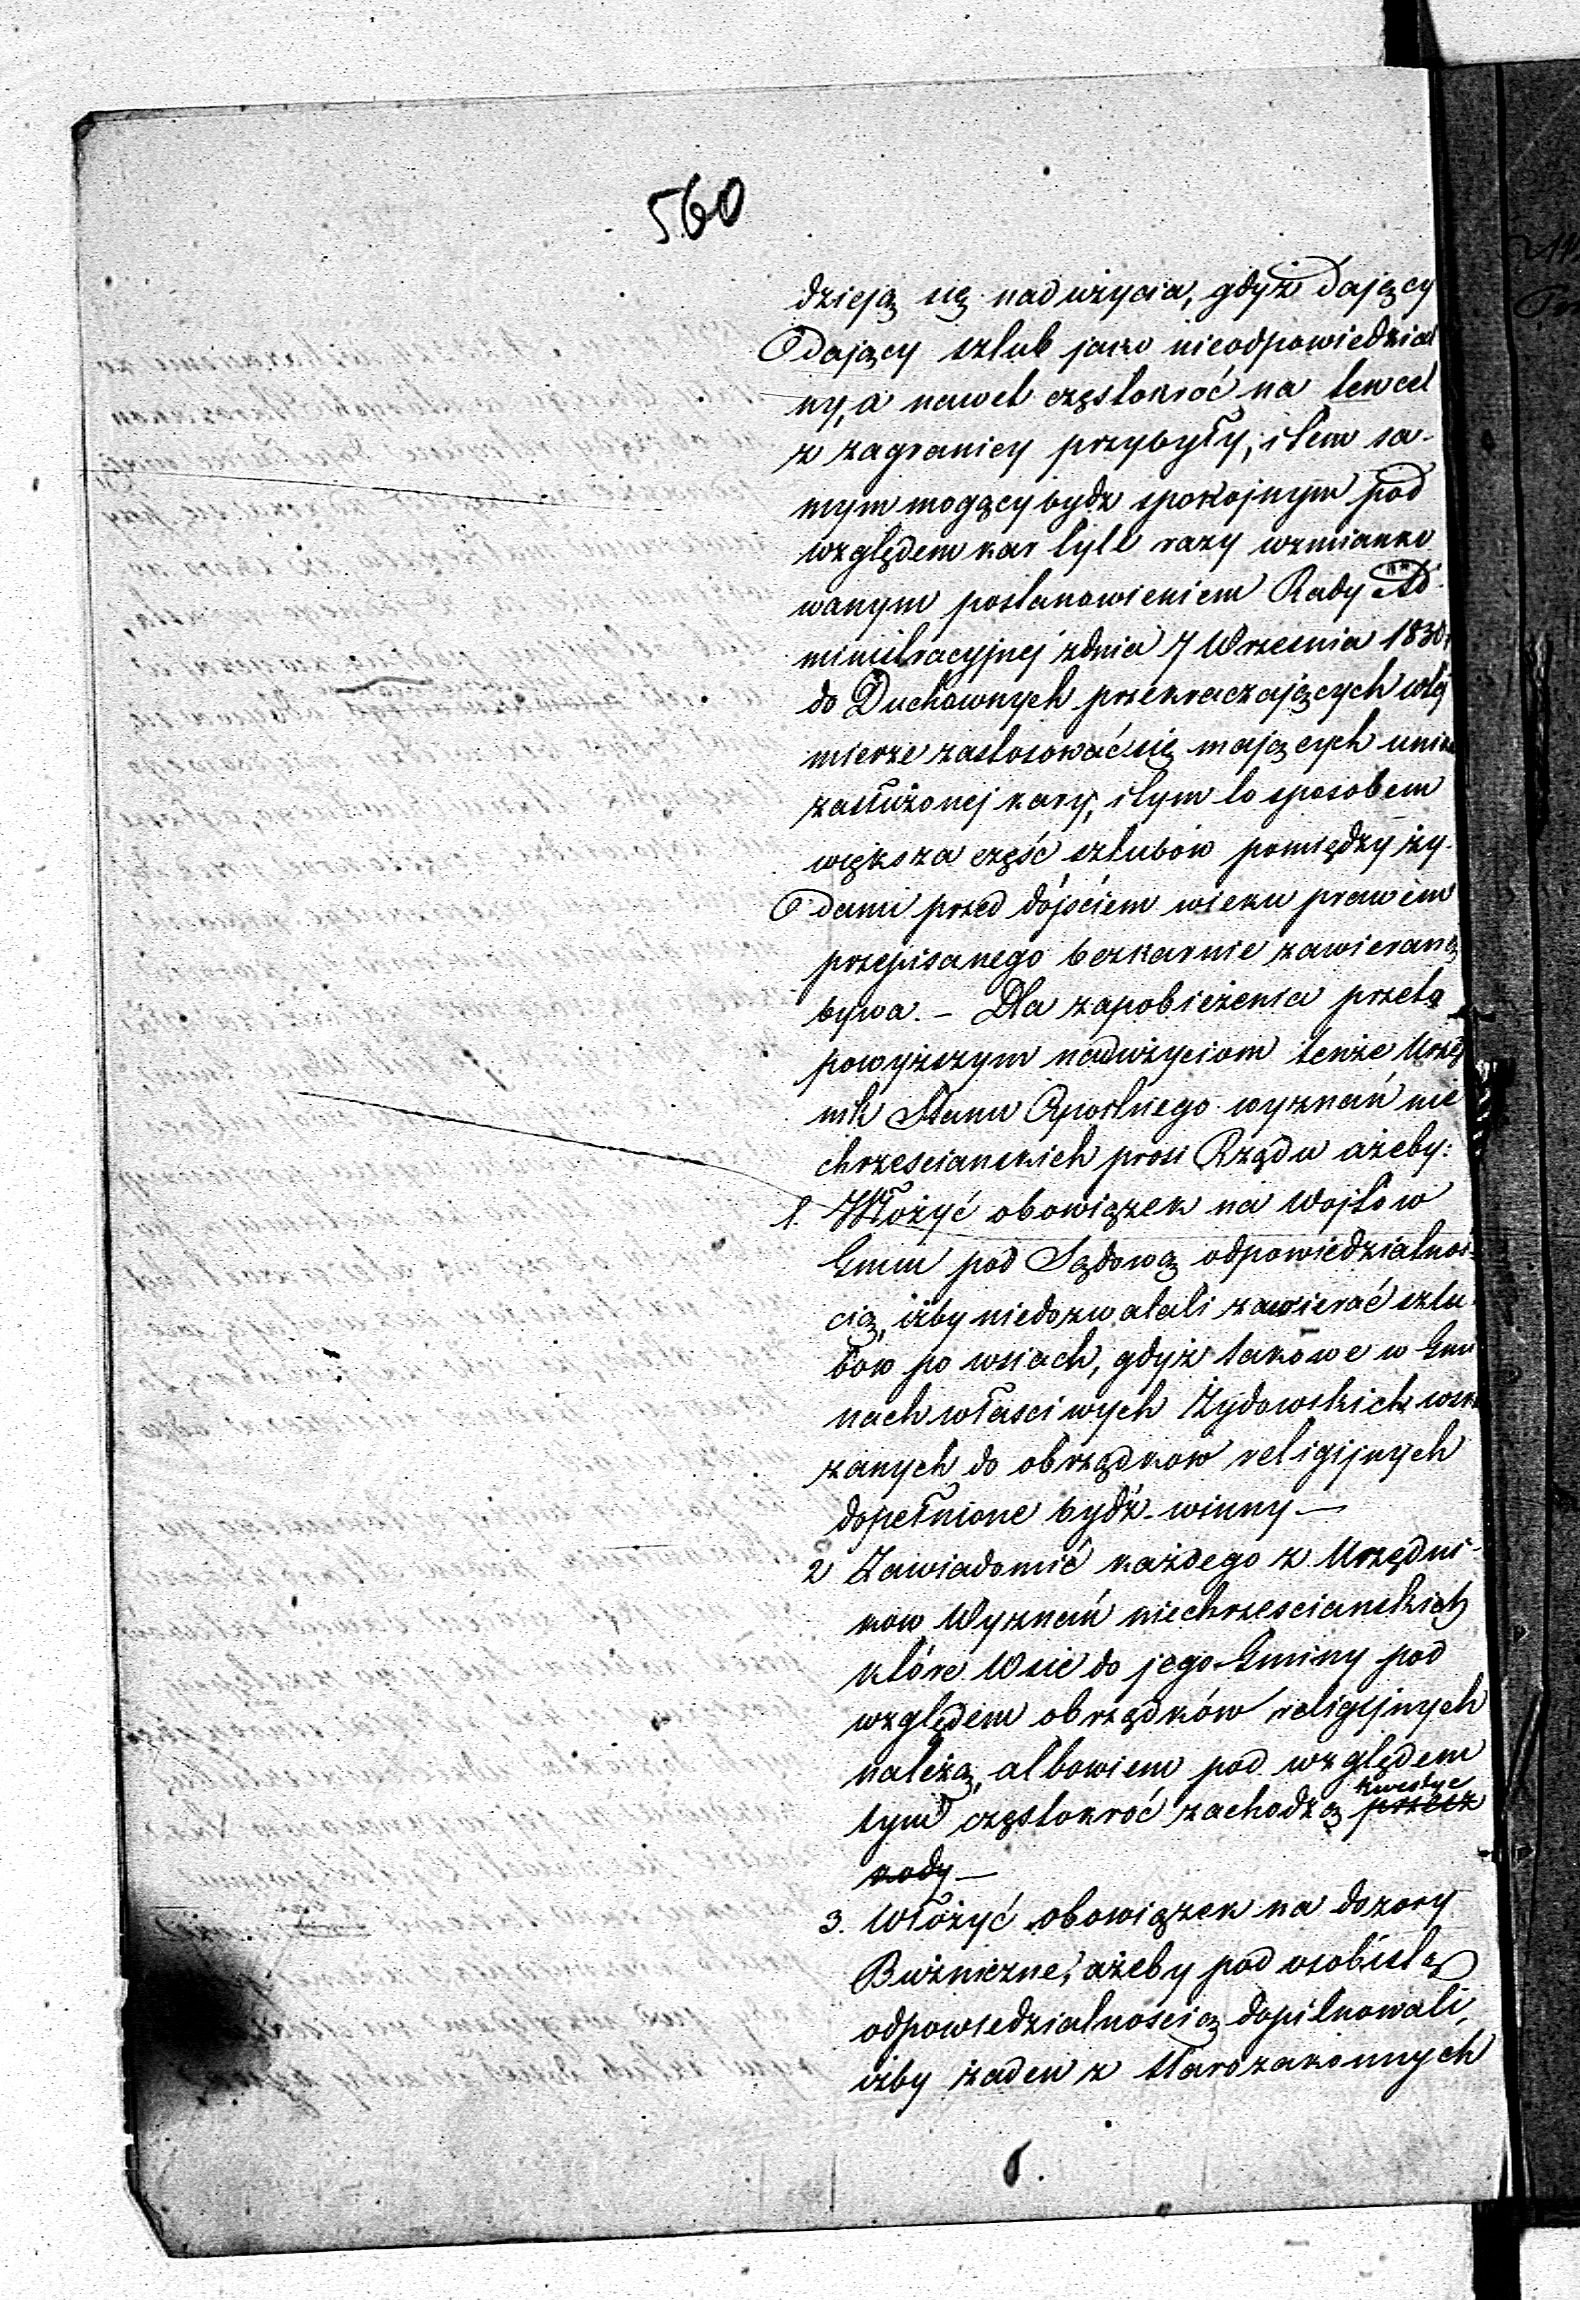 560
dzieją się nadużycia, gdyż dający
dający szlub jako nieodpowiedzial
ny, a nawet częstokroć na ten cel
z zagranicy przybyły, i tem sa-
mym mogący bydz spokojnym pod
względem kar tyle razy wzmianko
wanym postanowieniem Rady Ad
ministracyjnej z dnia 7 Wrzesnia 1830 r
do Duchownych przekraczających w tej
mierze zastosować się mających unika
zasłużonej kary, i tym to sposobem
większa część szlubow pomiędzy ży-
dami przed dójściem wieku prawem
przepisanego bezkarnie zawieraną
bywa. – Dla zapobieżenia przeto
powyższym nadużyciom tenże Urzę
nik Stanu Cywilnego wyznań nie
chrzescianskich prosi Rządu ażeby:
1. Włożyć obowiązek na Wojtow
Gmin pod Sądową odpowiedzialnoś-
cią, iżby niedozwalali zawierać szlu-
bow po wsiach, gdyż takowe w Gmi
nach własciwych Żydowskich wska
zanych do obrządkow religijnych
dopełnione bydź winny –
2 Zawiadomić każdego z Urzędni-
kow Wyznań niechrzescianskich
które Wsie do jego Gminy pod
względem obrządków religijnych
należą, albowiem pod względem
kwestye
tym częstokroć zachodzą przesz
kody –
3. Włożyć obowiązek na dozory
Bużniczne, ażeby pod osobistą
odpowiedzialnoscią dopilnowali,
iżby żaden z starozakonnych